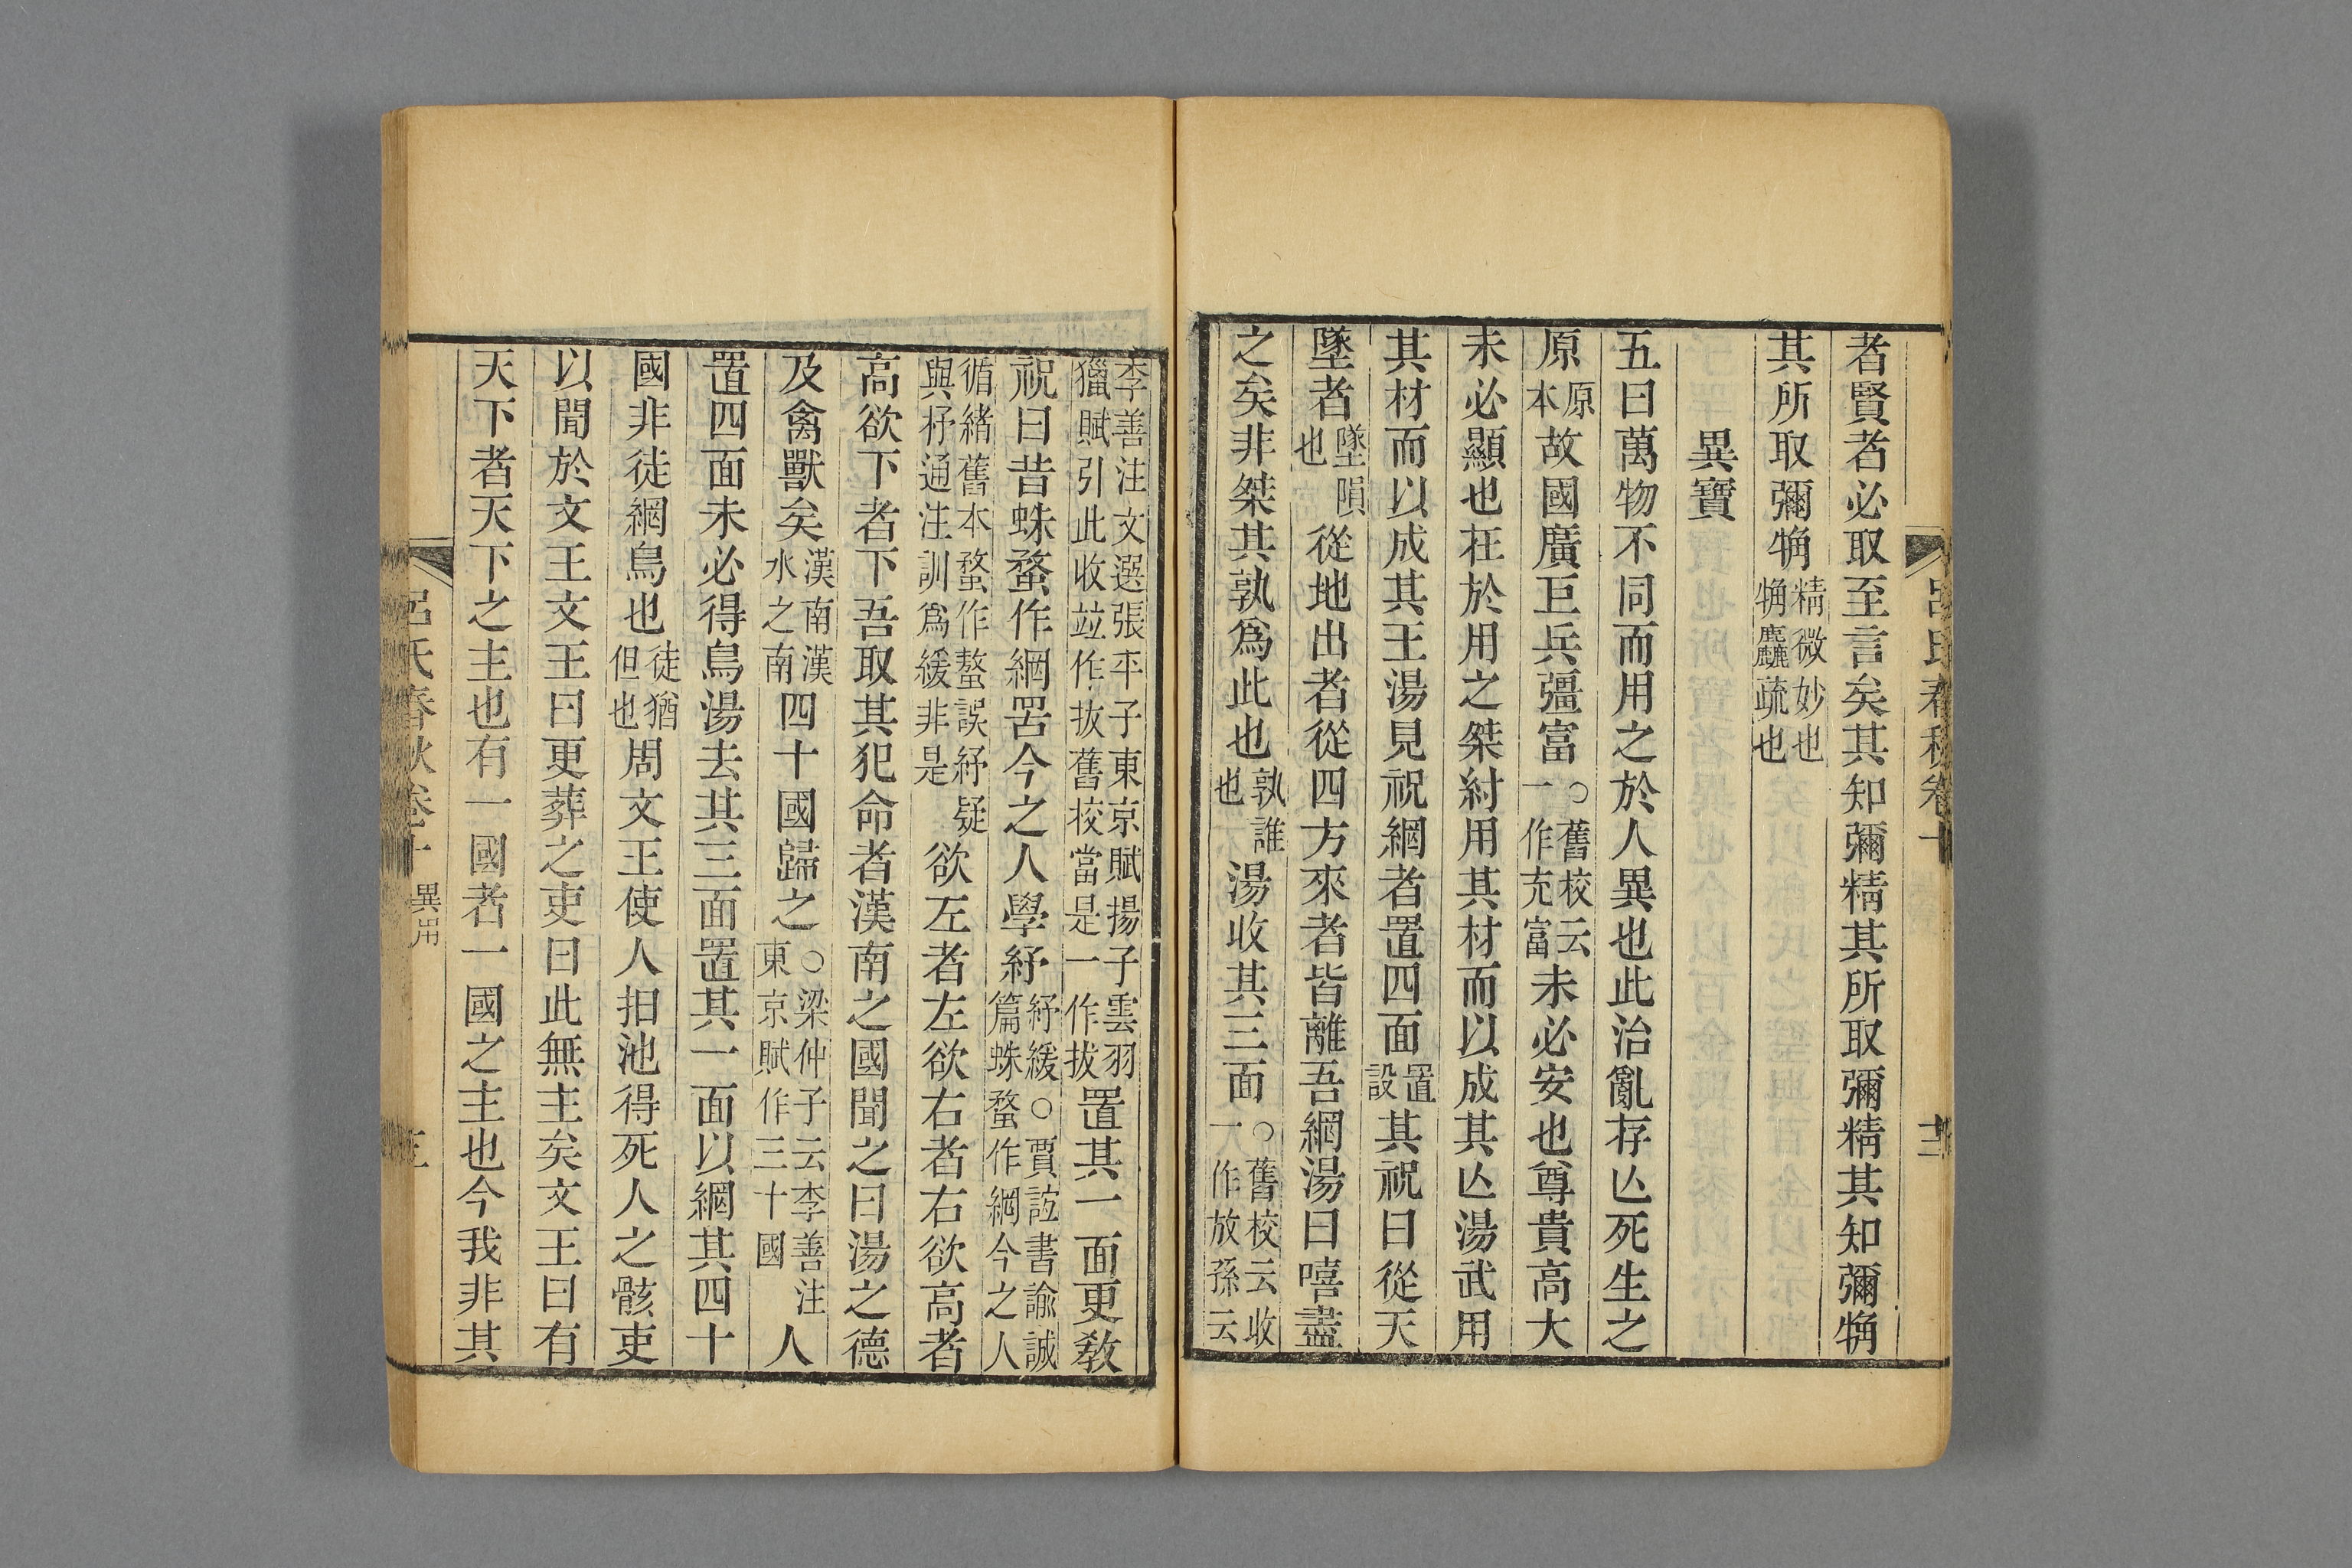 呂氏春秋卷十 十二
者賢者必取至言矣其知彌精其所取彌精其知彌觕
其所取彌觕精微妙也觕麤疏也
異寶
五曰萬物不同而用之於人異也此治亂存亾死生之
原原本故國廣巨兵彊富○舊校云一作充富未必安也尊貴高大
未必顯也在於用之桀紂用其材而以成其亾湯武用
其材而以成其王湯見祝網者置四面置設其祝曰從天
墜者墜隕也從地出者從四方來者皆離吾網湯曰嘻盡
之矣非桀其孰爲此也孰誰也湯收其三面○舊校云收一作放孫云
李善注文選張平子東京賦揚子雲羽獵賦引此收竝作拔舊校當是一作拔置其一面更敎
祝曰昔蛛蝥作網罟今之人學紓紓緩○賈誼書諭誠篇蛛蝥作網今之人
循緒舊本蝥作螯誤紓疑與杼通注訓爲緩非是欲左者左欲右者右欲高者
高欲下者下吾取其犯命者漢南之國聞之曰湯之德
及禽獸矣漢南漢水之南四十國歸之○梁仲子云李善注東京賦作三十國人
置四面未必得鳥湯去其三面置其一面以網其四十
國非徒網鳥也徒猶但也周文王使人抇池得死人之骸吏
以聞於文王文王曰更葬之吏曰此無主矣文王曰有
天下者天下之主也有一國者一國之主也今我非其
呂氏春秋卷十 異用